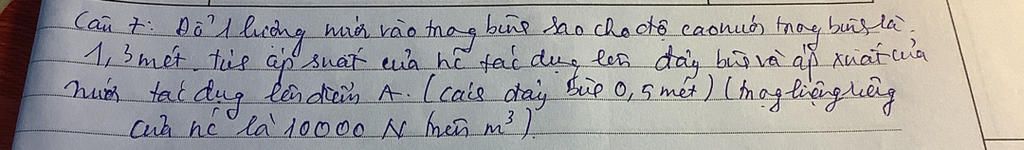 Câu 7: Đổ 1 lượng nước vào trong bình sao cho độ cao nước trong bình là
1,3 mét. Tính áp suất của nc tác dụng lên đáy bình và áp xuất của
nước tác dụng lên điểm A. (cách đáy bình 0,5 mét) (trọng lượng riêng
của nc là 10000 N trên m³).